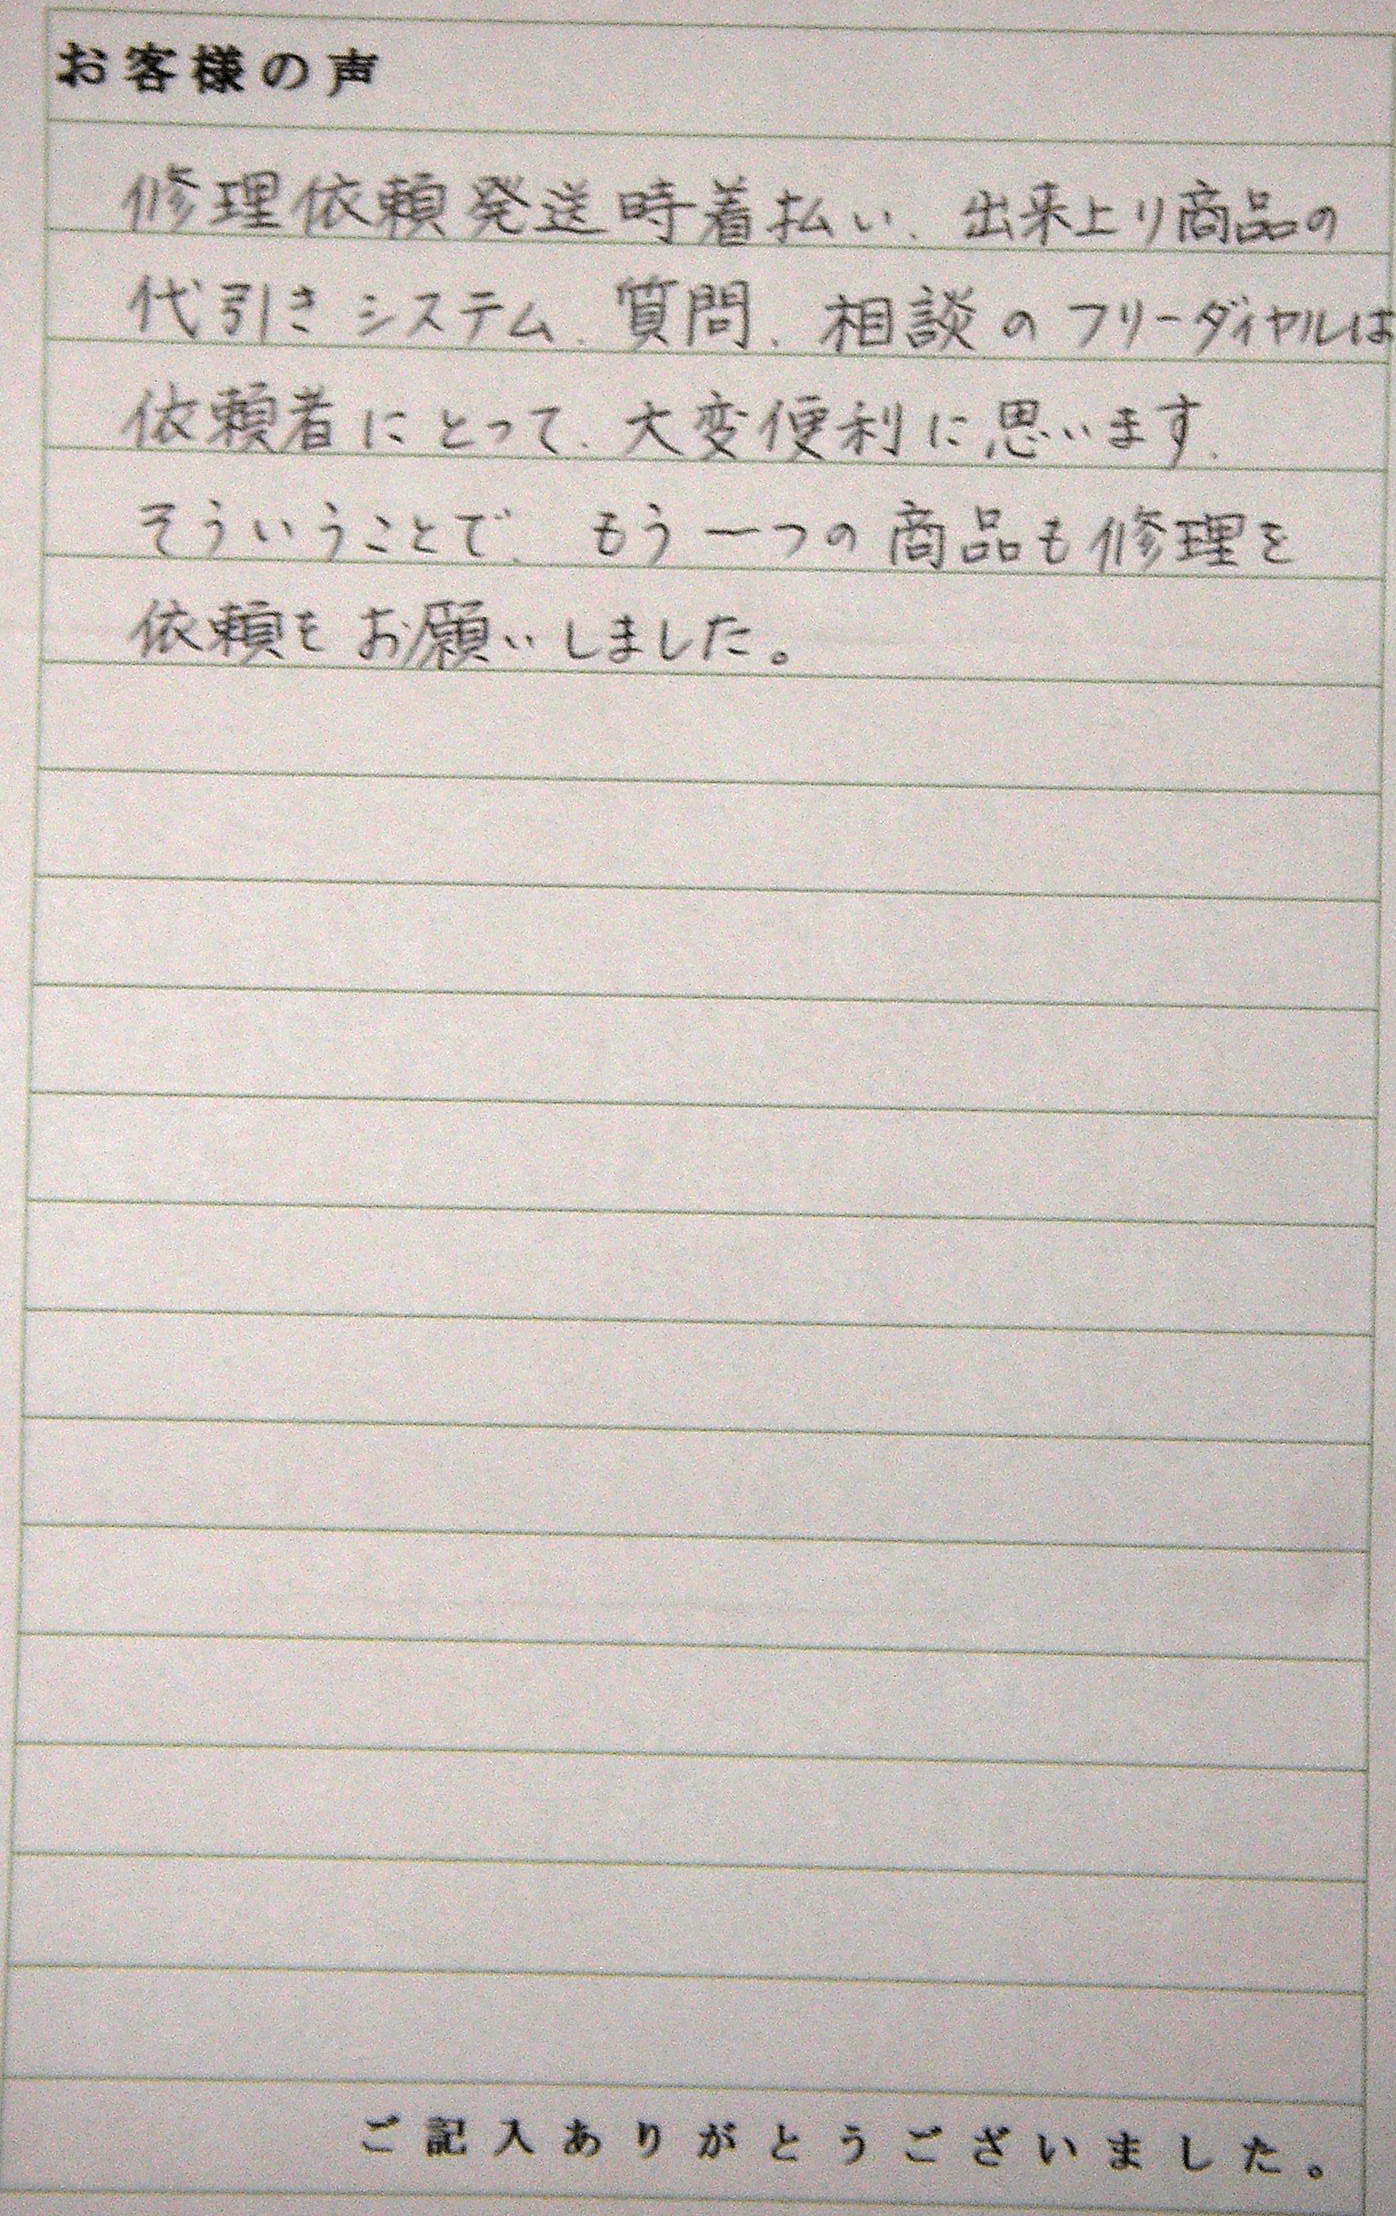 お客様の声
修理依頼発送時着払い、出来上り商品の
代引きシステム、質問、相談のフリーダイヤルは
依頼者にとって、大変便利に思います。
そういうことで、もう一つの商品も修理を
依頼をお願いしました。
ご記入ありがとうございました。